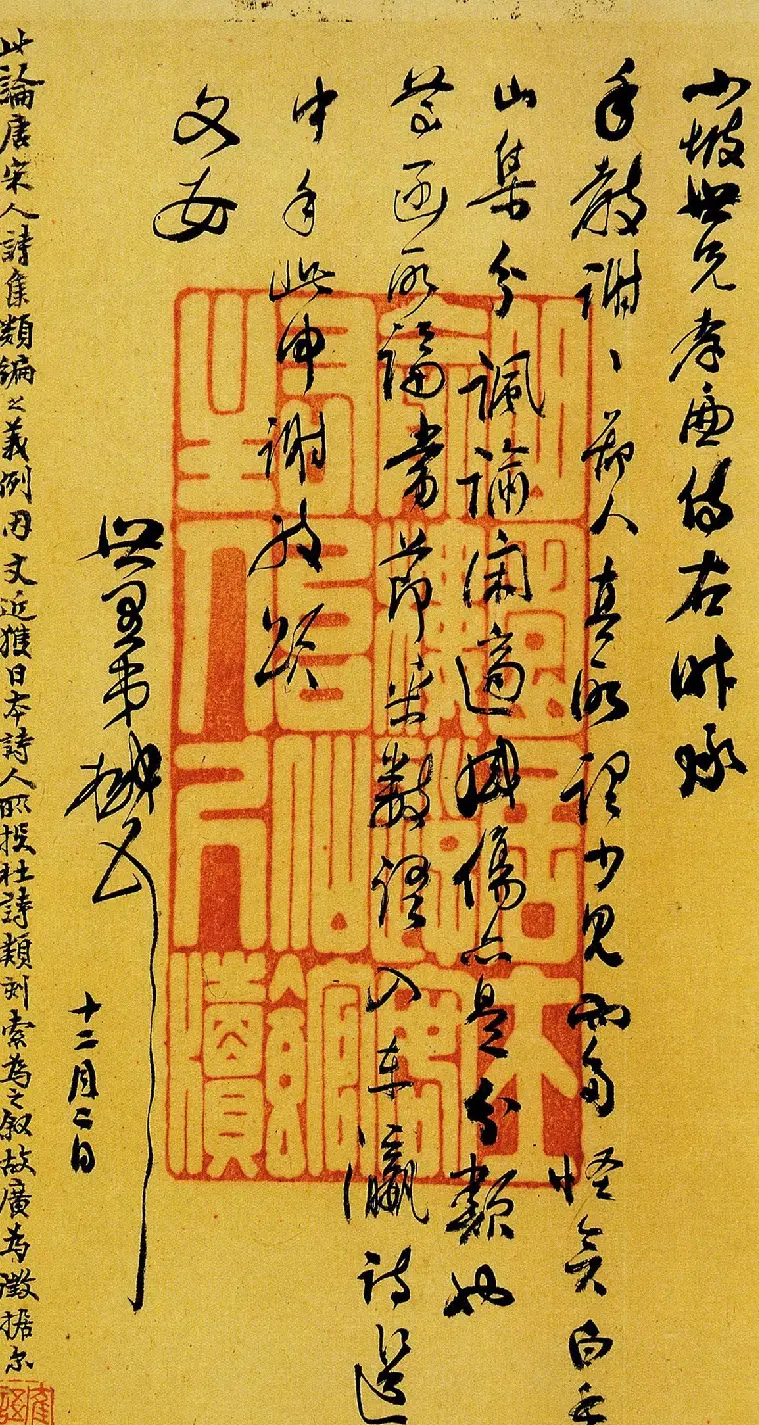 小坡世兄孝廉侍右昨承
手教謝、鄙人真所謂少見而多怪矣白香
山集分諷諭閑適感傷亦是分類如
尊函所論當節采數語入東瀛詩選
中手此申謝敬頌
文安
世愚弟樾
十二月二日
此論唐宋人詩集類編之義例因文近獲日本詩人所撰杜詩類刻索為之叙故廣為徵據尔